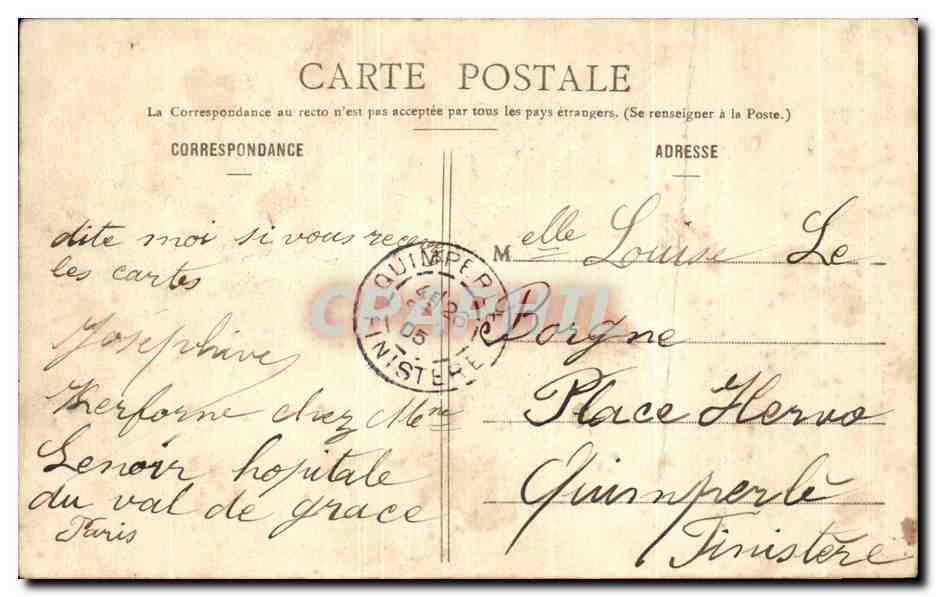 CARTE POSTALE
La Correspondance au recto n'est pas acceptée par tous les pays étrangers. (Se renseigner à la Poste.)
CORRESPONDANCE
dite moi si vous
les cartes
Joséphine
Kerforne chez Mme
Lenoir hopitale
du val de grace
Paris
QUIMPERLÉ
05
FINISTÈRE
ADRESSE
Melle Louise Le
Borgne
Place Hervo
Quimperlé
Finistère